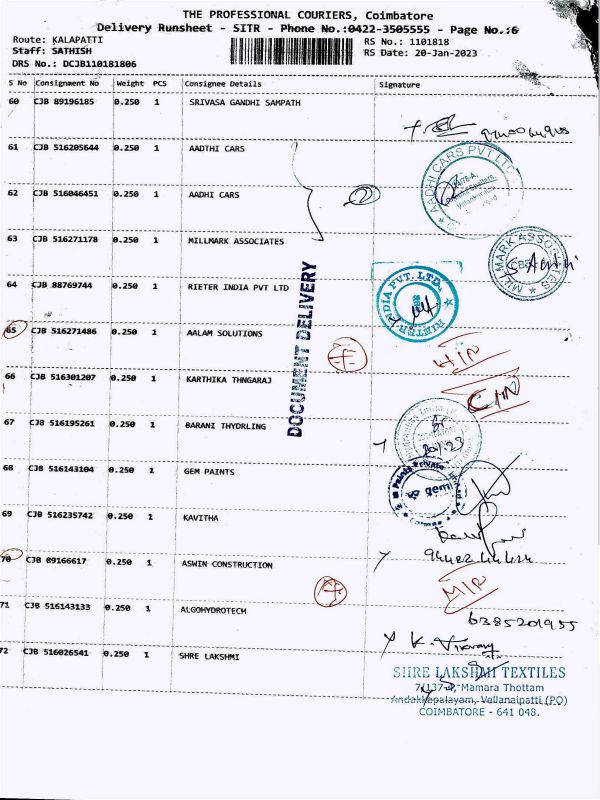 THE PROFESSIONAL COURIERS, Coimbatore
Delivery Runsheet - SITR - Phone No.:0422-3505555 - Page No.:6
Route: KALAPATTI
Staff: SATHISH
DRS No.: DCJB110181806
RS No.: 1101818
RS Date: 20-Jan-2023
S No Consignment No Weight PCS Consignee Details Signature
60 CJB 89196185 0.250 1 SRIVASA GANDHI SAMPATH
61 CJB 516205644 0.250 1 AADTHI CARS
AADHI CARS PVT LTD
62 CJB 516046451 0.250 1 AADHI CARS
63 CJB 516271178 0.250 1 MILLMARK ASSOCIATES
MILLMARK ASSOCIATES
64 CJB 88769744 0.250 1 RIETER INDIA PVT LTD
RIETER INDIA PVT. LTD.
DOCUMENT DELIVERY
65 CJB 516271486 0.250 1 AALAM SOLUTIONS
66 CJB 516301207 0.250 1 KARTHIKA THNGARAJ
67 CJB 516195261 0.250 1 BARANI THYDRLING
68 CJB 516143104 0.250 1 GEM PAINTS
gem
69 CJB 516235742 0.250 1 KAVITHA
70 CJB 89166617 0.250 1 ASWIN CONSTRUCTION
71 CJB 516143133 0.250 1 ALGOHYDROTECH
6385201955
72 CJB 516026541 0.250 1 SHRE LAKSHMI
SHRE LAKSHMI TEXTILES
7/137-, Mamara Thottam
Andakkepalayam, Vellanaipatti (PO)
COIMBATORE - 641 048.